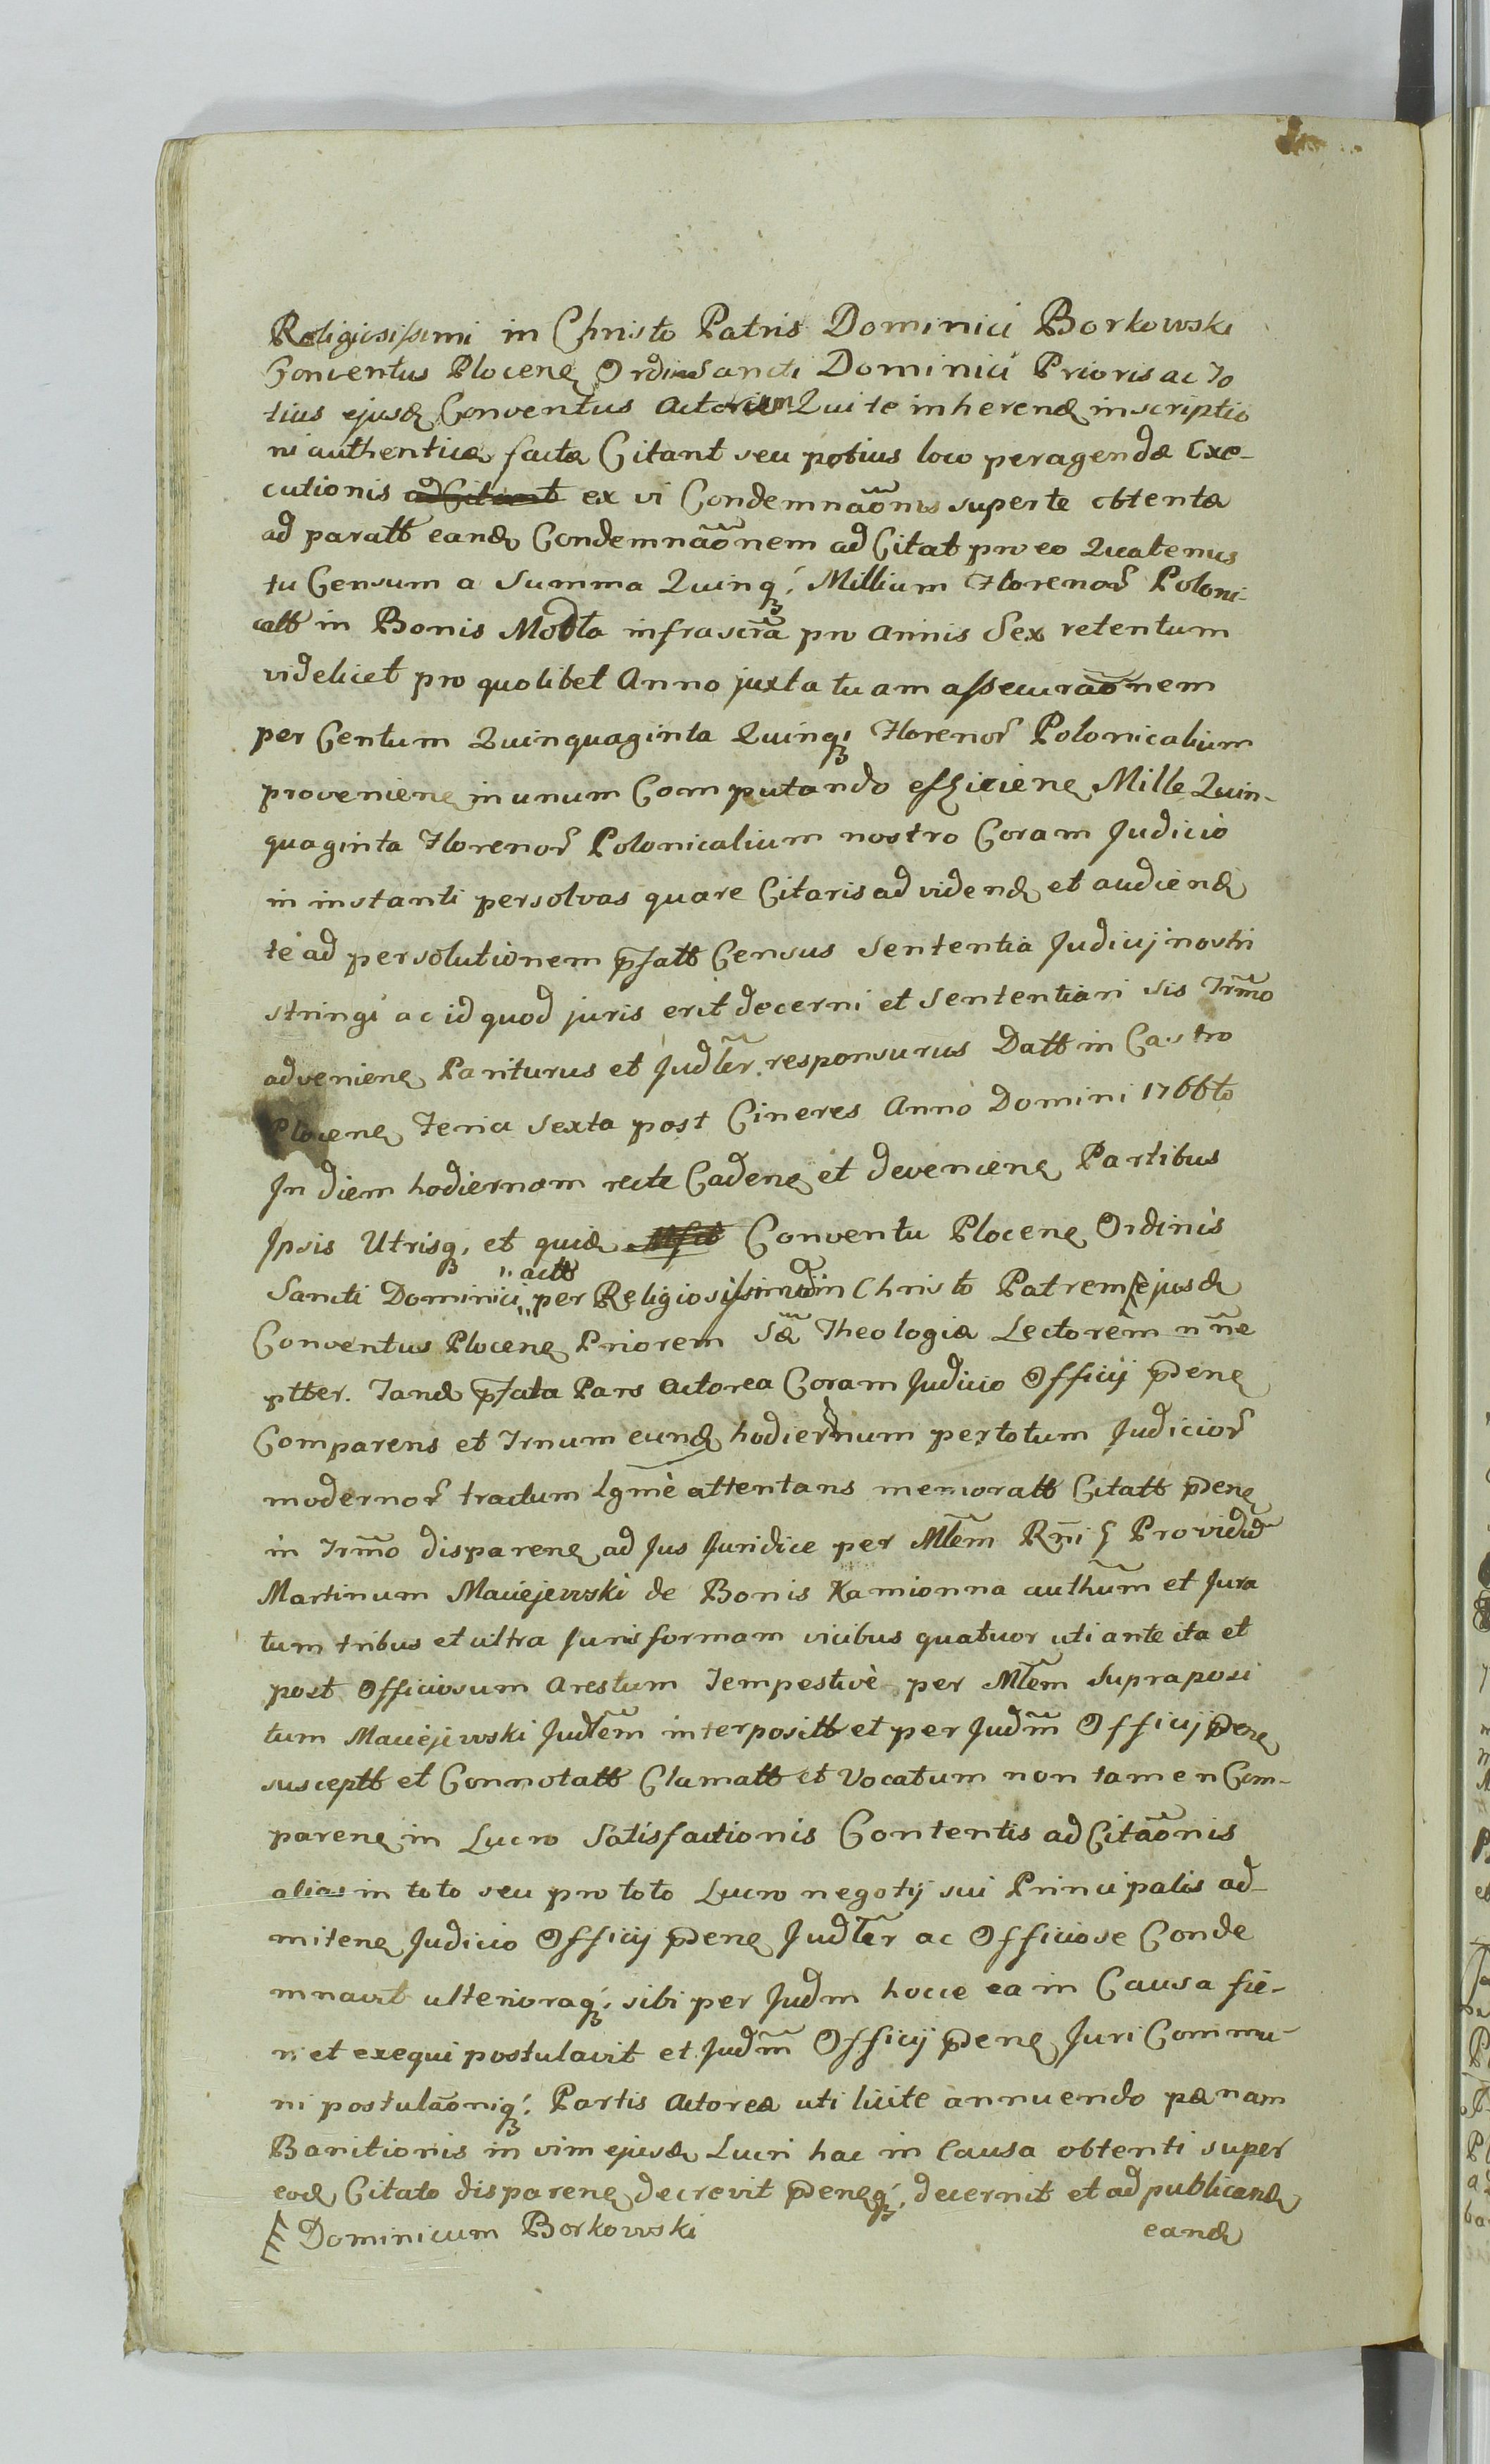 Religiosissimi in Christo Patris Dominici Borkowski
Conventus Plocenę Ordin Sancti Dominici Prioris ac To
tius ejusd Conventus Actorum Qui te inherend inscriptio
ni authenticæ factæ Citant seu potius loco peragendæ exe-
cutionis adCitant ex vi Condemnãonis super te obtentæ
ad paratt eand Condemnãonem adCitat pro eo Quatenus
tu Censum a Summa Quinq; Millium Florenor Poloni-
catt in Bonis Modła infrascrã pro Annis Sex retentum
videlicet pro quolibet Anno juxta tuam assecurãonem
per Centum Quinquaginta Quinq; Florenor Polonicalium
provenienę in unum Computando efficienę Mille Quin-
quaginta Florenor Polonicalium nostro Coram Judicio
in instanti persolvas quare Citaris ad videnđ et audienđ
te ad persolutionem p̃fatt Census Sententia Judicij nostri
stringi ac id quod juris erit decerni et Sententiari sis Trm̃o
advenienę Pariturus et Judłer responsurus Datt in Castro
Plocenę Feria Sexta post Cineres Anno Domini 1766to
In diem hodiernam recte Cadenę et devenienę Partibus
Ipsis Utrisq; et quiđ Conventu Plocenę Ordinis
Sancti Dominici actt per Religiosissimum in Christo Patrem ejusđ
Conventus Plocenę Priorem Sæ Theologiæ Lectorem ññe
ptter. Tanđ p̃fata Pars Actorea Coram Judicio Officij p̃denę
Comparens et Trnum eunđ hodiernum per totum Judicior
modernor tractum Lgmè attentans memoratt Citatt p̃denę
in Trm̃o disparenę ad Jus Juridice per Młem Rñi § Providũ
Martinum Maciejewski de Bonis Kamionna authũm et Jura
tum tribus et ultra Juris formam vicibus quatuor uti ante ita et
post Officiosum Arestum Tempestivè per Młem Supraposi
tum Maciejewski Judłem interpositt et per Judm̃ Officij p̃denę
susceptt et Connotatt Clamatt et Vocatum non tamen Com-
parenę in Lucro Satisfactionis Contentis adCitãonis
alias in toto seu pro toto Lucro negotij sui Principalis ad-
mitenę Judicio Officij p̃denę Judłer ac Officiose Conde
mnavit ulterioraq; sibi per Judm hocce ea in Causa fie-
ri et exequi postulavit et Judm̃ Officij p̃denę Juri Commu-
ni postulãoniq; Partis Actoreæ uti licite annuendo pænam
Banitionis in vim ejusđ Lucri hac in Causa obtenti super
eođ Citato disparenę decrevit p̃denęq; decernit et ad publicanđ
Dominicum Borkowski
eanđ